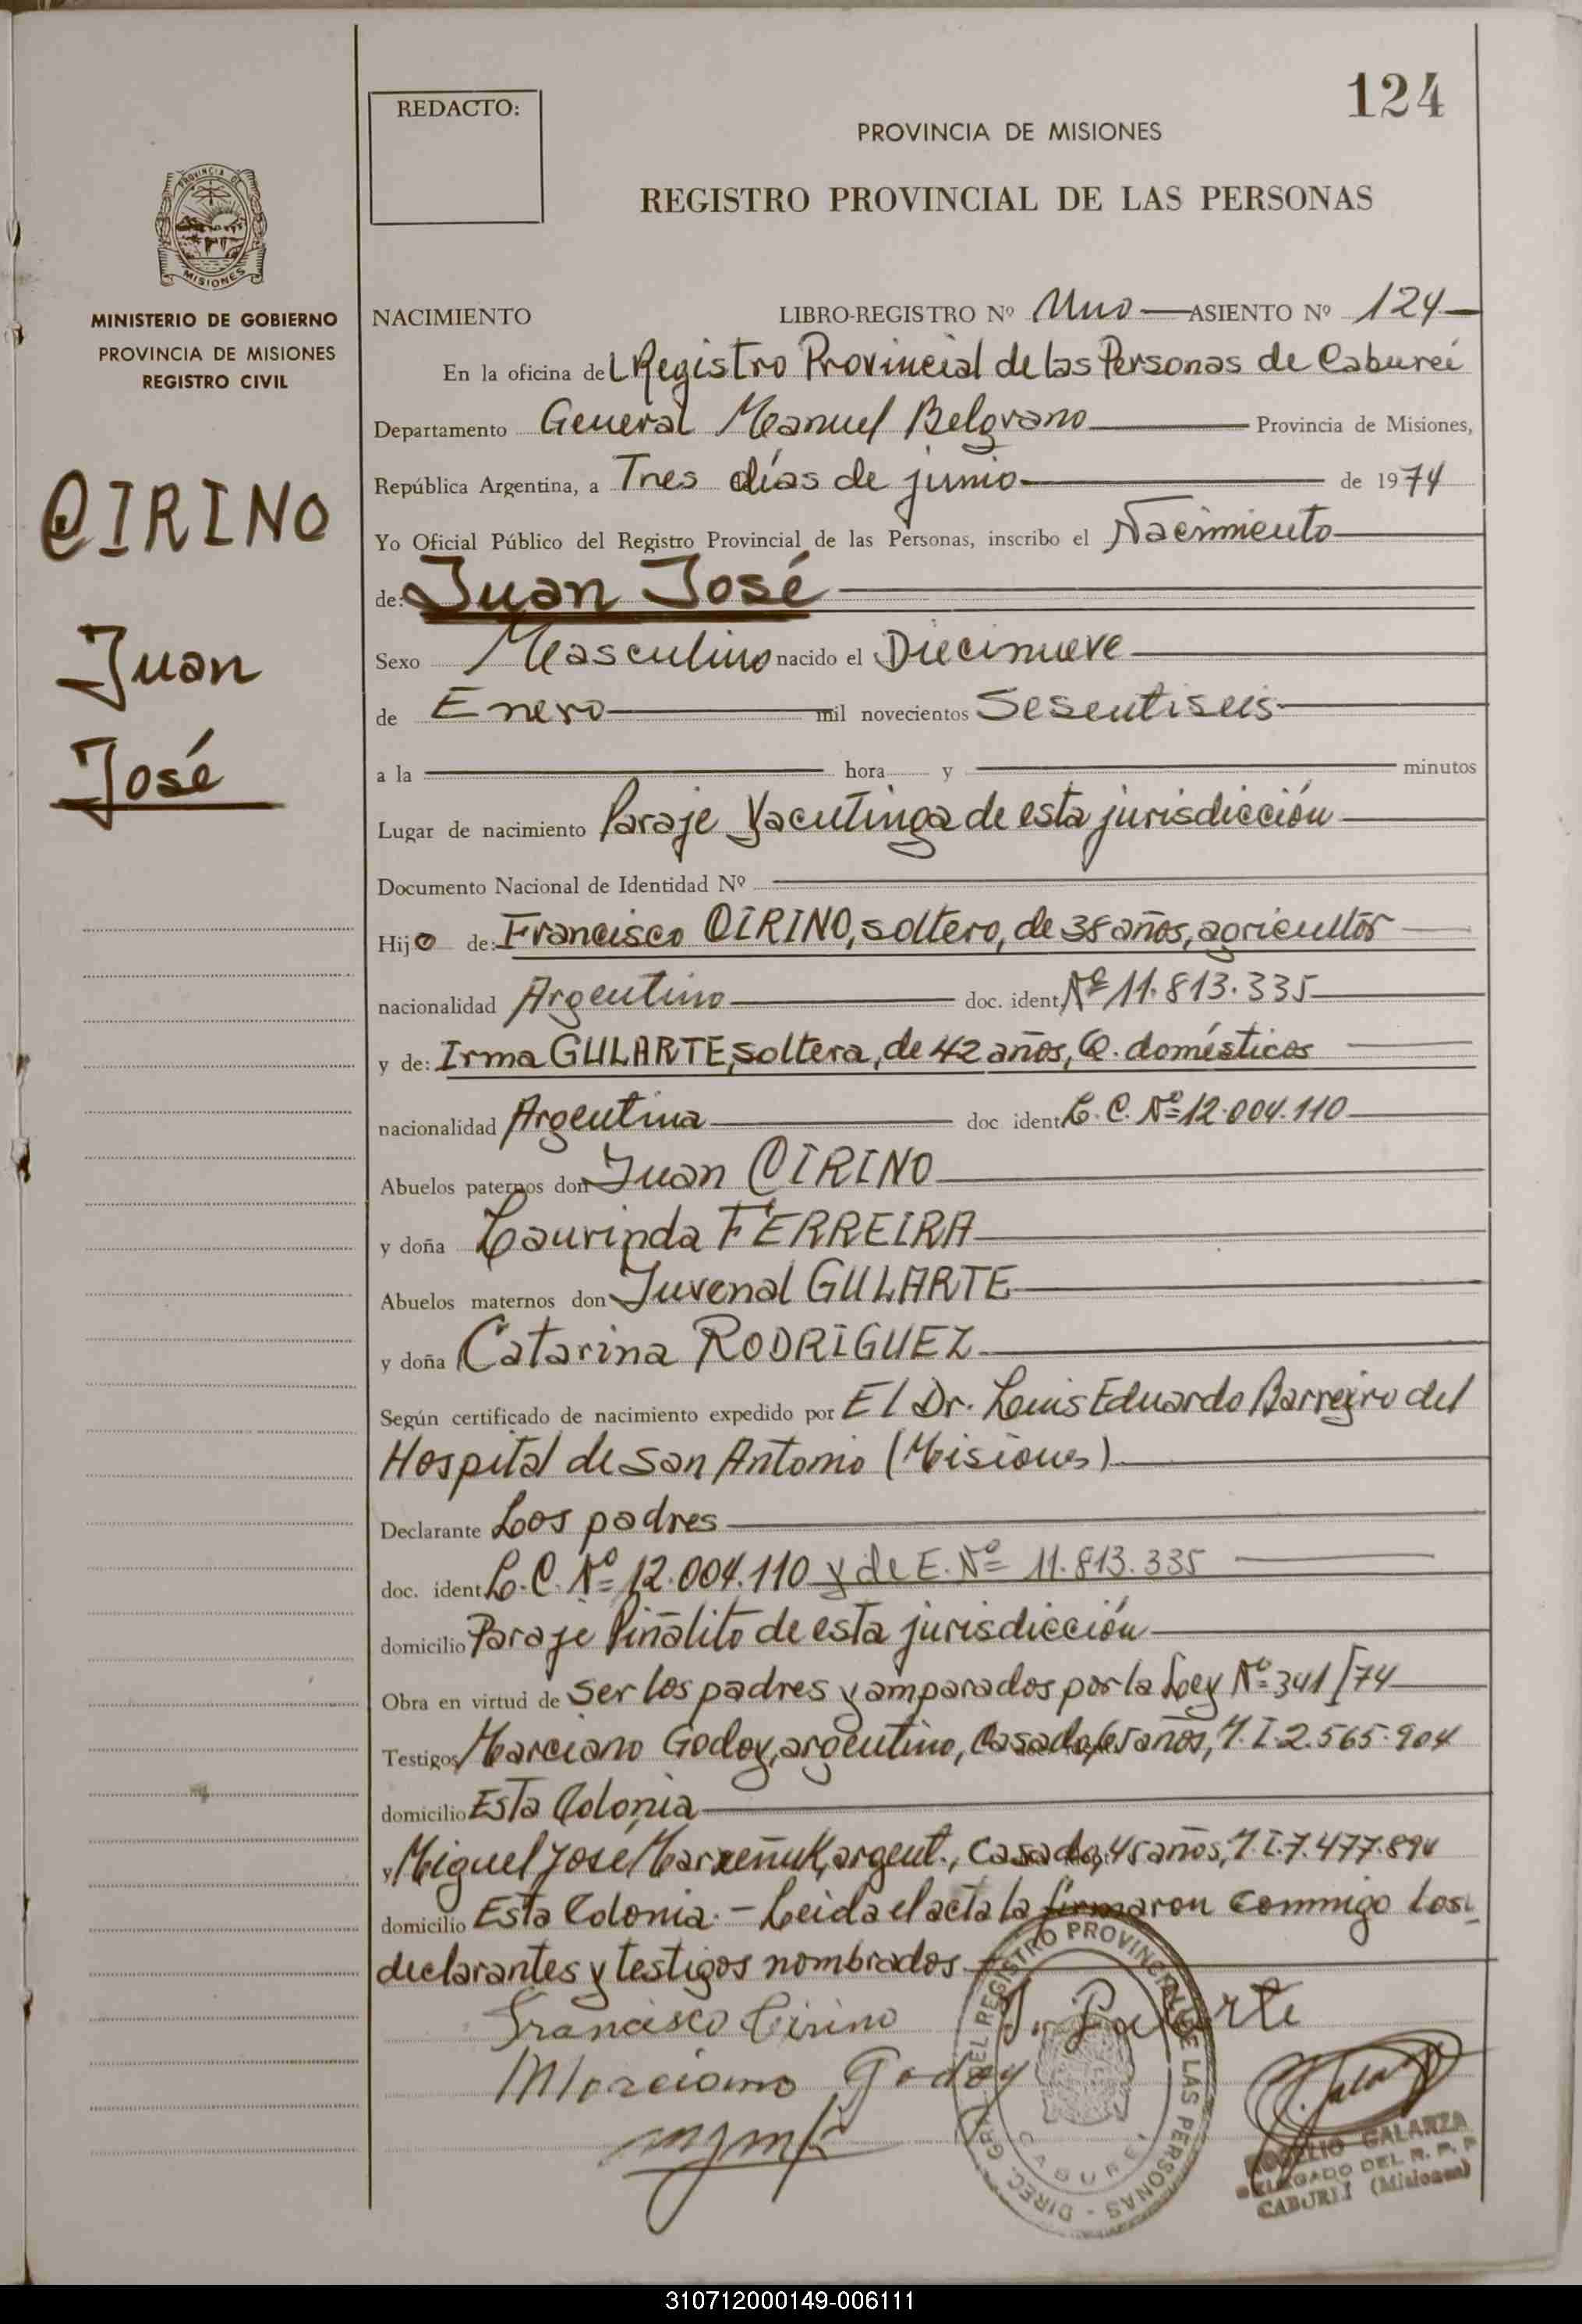 REDACTO:
124
PROVINCIA DE MISIONES
REGISTRO PROVINCIAL DE LAS PERSONAS
PROVINCIA DE
MISIONES
MINISTERIO DE GOBIERNO
PROVINCIA DE MISIONES
REGISTRO CIVIL
CIRINO
Juan
José
NACIMIENTO LIBRO-REGISTRO Nº Uno ASIENTO Nº 124
En la oficina del Registro Provincial de las Personas de Cabureí
Departamento General Manuel Belgrano Provincia de Misiones,
República Argentina, a Tres días de junio de 1974
Yo Oficial Público del Registro Provincial de las Personas, inscribo el Nacimiento
de: Juan José
Sexo Masculino nacido el Diecinueve
de Enero mil novecientos Sesentiseis
a la hora y minutos
Lugar de nacimiento Paraje Yacutinga de esta jurisdicción
Documento Nacional de Identidad Nº
Hijo de: Francisco CIRINO, soltero, de 38 años, agricultor
nacionalidad Argentino doc. ident. Nº 11.813.335
y de: Irma GULARTE, soltera, de 42 años, Q. domésticos
nacionalidad Argentina doc ident. L. C. Nº 12.004.110
Abuelos paternos don Juan CIRINO
y doña Laurinda FERREIRA
Abuelos maternos don Juvenal GULARTE
y doña Catarina RODRIGUEZ
Según certificado de nacimiento expedido por El Dr. Luis Eduardo Barreyro del
Hospital de San Antonio (Misiones)
Declarante Los padres
doc. ident. L. C. Nº 12.004.110 y de E. Nº 11.813.335
domicilio Paraje Piñalito de esta jurisdicción
Obra en virtud de Ser los padres y amparados por la Ley Nº 341/74
Testigos Marciano Godoy, argentino, Casado, 65 años, M.I. 2.565.904
domicilio Esta Colonia
y Miguel José argent., Casado, 45 años, M.I. 7.477.894
domicilio Esta Colonia.- Leida el acta la firmaron conmigo los
declarantes y testigos nombrados
Francisco Cirino
Marciano Godoy
DIREC. GRAL. DEL REGISTRO PROVINCIAL DE LAS PERSONAS
CABUREI
ROGELIO GALARZA
DELEGADO DEL R. P. P
CABUREI (Misiones)
310712000149-006111